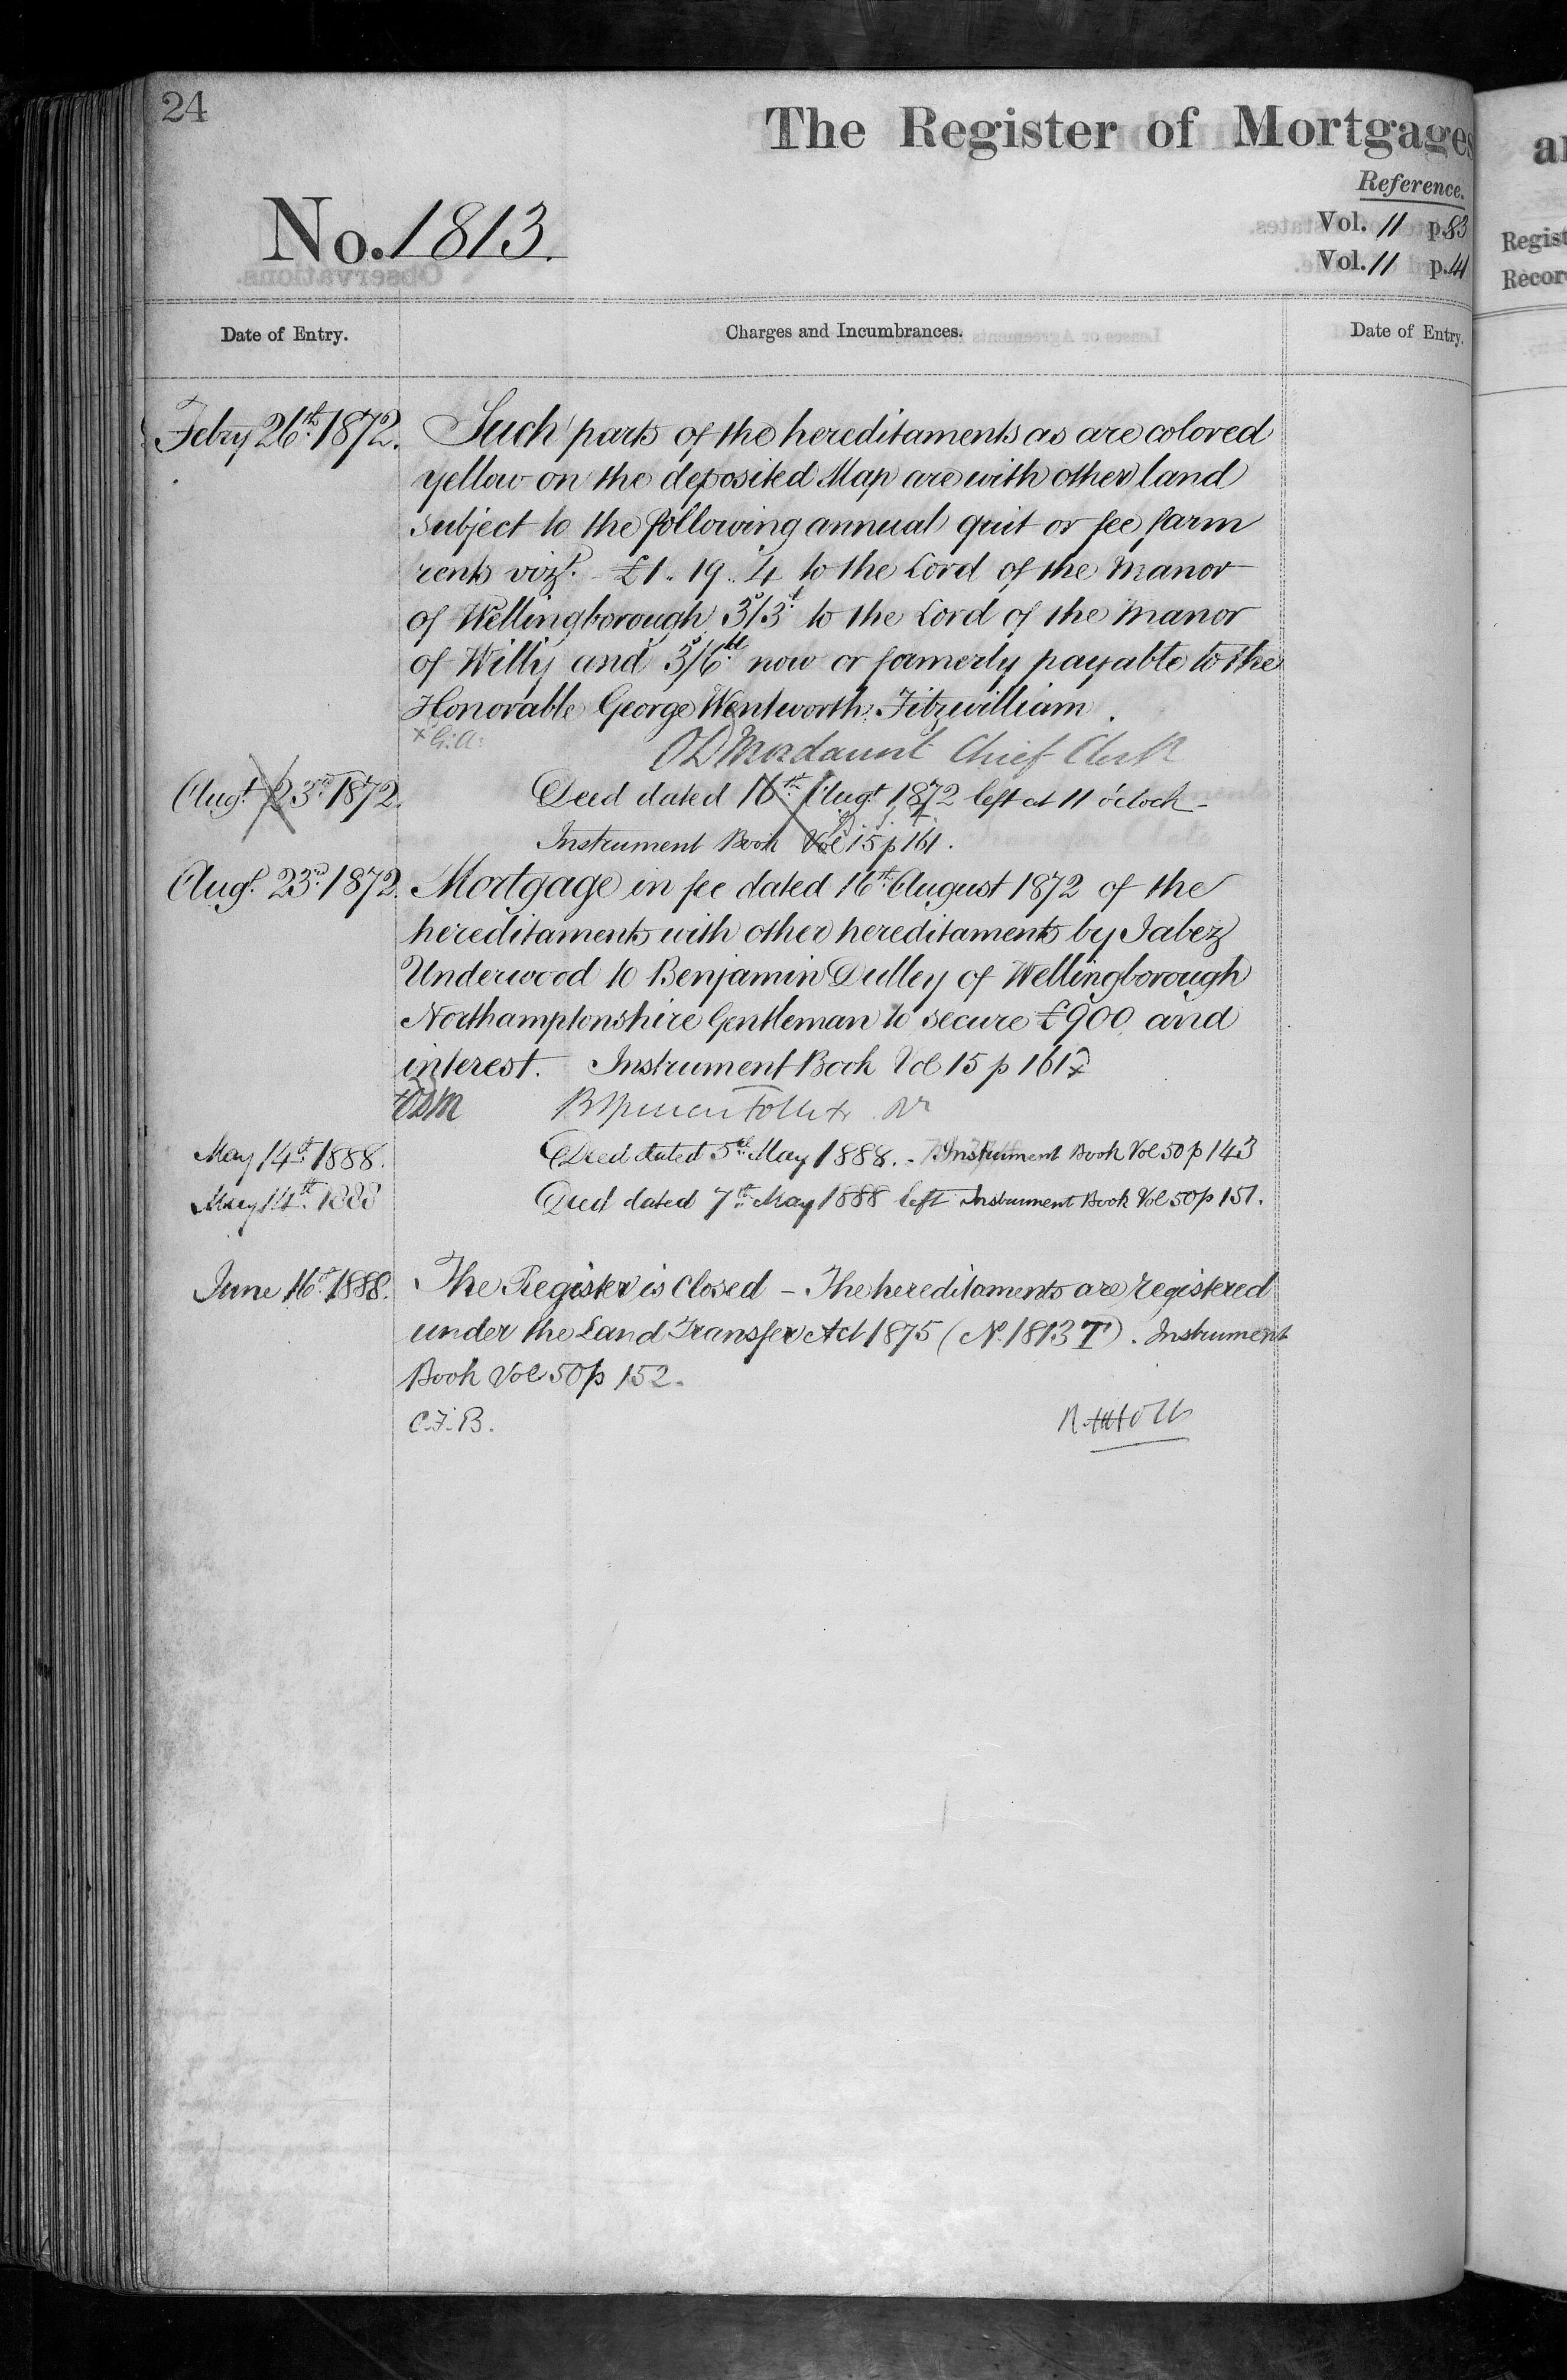 24
The Register of Mortgages
Reference.
No. 1813.
Vol. 11 p. 83
Vol. 11 p. 41
Regist
Recor
Date of Entry.
Charges and Incumbrances.
Date of Entry.
Febry 26th 1872.
Such parts of the hereditaments as are colored
yellow on the deposited Map are with other land
subject to the following annual quit or fee farm
rents vizt. £1.. 19.. 4 to the Lord of the Manor
of Wellingborough 3s/3d to the Lord of the Manor
of Wilby and 3s/6d now or formerly payable to the
Honorable George Wentworth Fitzwilliam.
Mordaunt Chief Clerk
Augt 23rd 1872.
Deed dated 16th Augt 1872 left at 11 o'clock -
Instrument Book Vol 15 p 161.
Augt. 23rd 1872.
Mortgage in fee dated 16th August 1872 of the
hereditaments with other hereditaments by Jabez
Underwood to Benjamin Dulley of Wellingborough
Northamptonshire Gentleman to secure £900 and
interest. Instrument Book Vol 15 p 161 x
May 14th 1888.
Deed dated 5th May 1888. - Instrument Book Vol 50 p 143
May 14th 1888
Deed dated 7th May 1888 left Instrument Book Vol 50 p 151.
June 16th 1888.
The Register is Closed - The hereditaments are registered
under the Land Transfer Act 1875 (No. 1813 T). Instrument
Book Vol 50 p 152.
C.F.B.